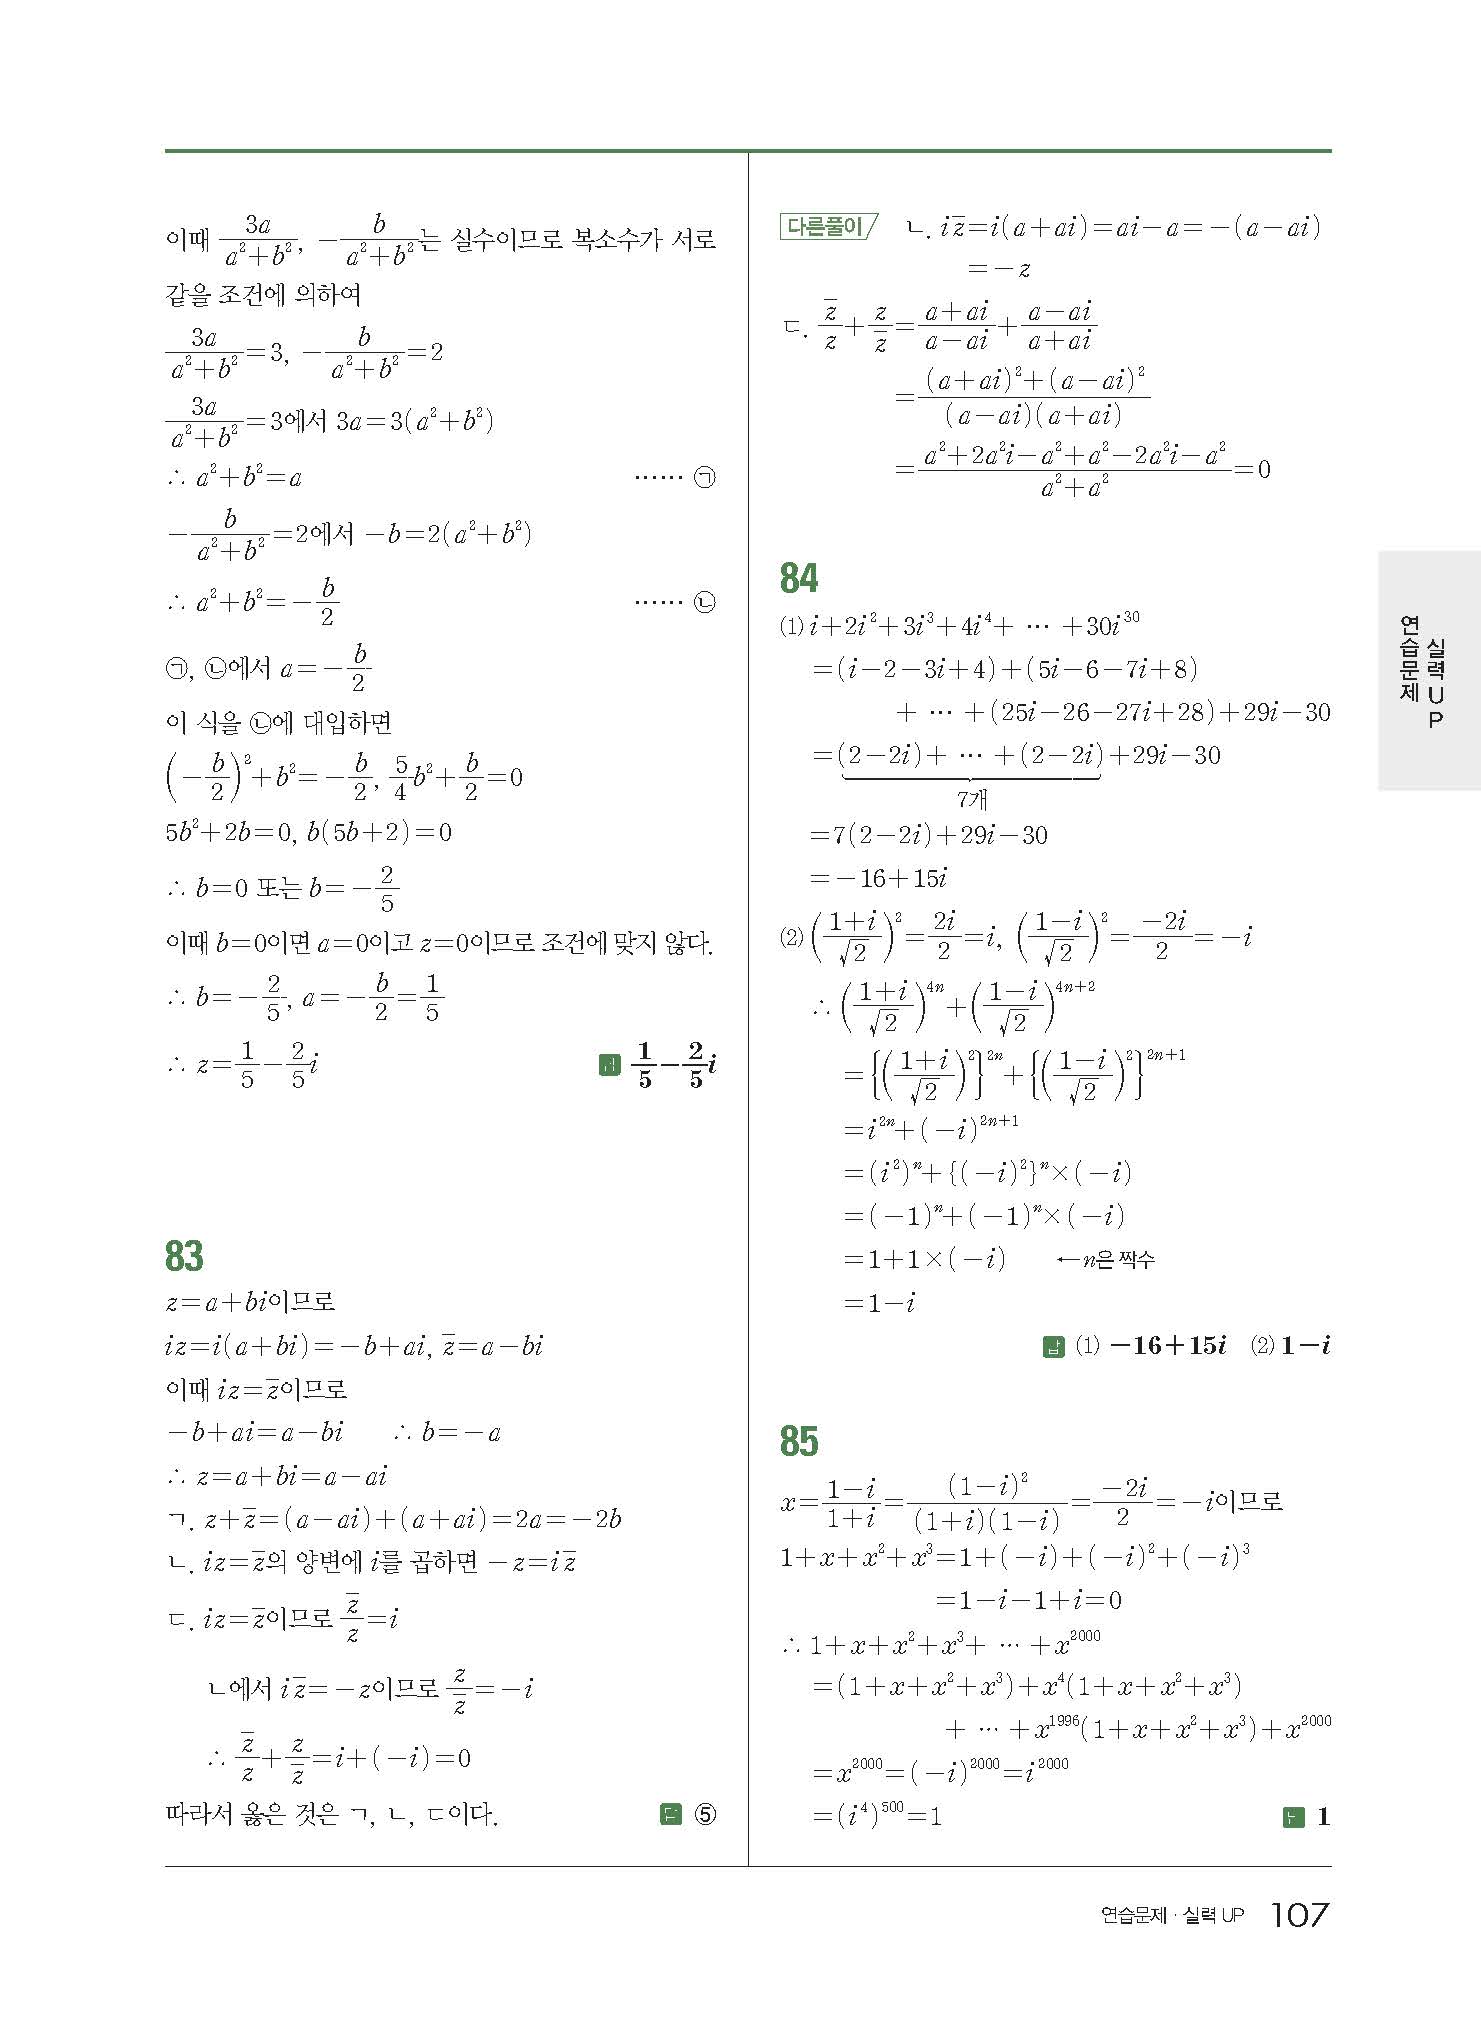 이때 3a/(a²+b²), -b/(a²+b²)는 실수이므로 복소수가 서로
같을 조건에 의하여
3a/(a²+b²)=3, -b/(a²+b²)=2
3a/(a²+b²)=3에서 3a=3(a²+b²)
∴ a²+b²=a …… ㉠
-b/(a²+b²)=2에서 -b=2(a²+b²)
∴ a²+b²=-b/2 …… ㉡
㉠, ㉡에서 a=-b/2
이 식을 ㉡에 대입하면
(-b/2)²+b²=-b/2, 5/4 b²+b/2=0
5b²+2b=0, b(5b+2)=0
∴ b=0 또는 b=-2/5
이때 b=0이면 a=0이고 z=0이므로 조건에 맞지 않다.
∴ b=-2/5, a=-b/2=1/5
∴ z=1/5-2/5 i 답 1/5-2/5 i
83
z=a+bi이므로
iz=i(a+bi)=-b+ai, z̅=a-bi
이때 iz=z̅이므로
-b+ai=a-bi ∴ b=-a
∴ z=a+bi=a-ai
ㄱ. z+z̅=(a-ai)+(a+ai)=2a=-2b
ㄴ. iz=z̅의 양변에 i를 곱하면 -z=iz̅
ㄷ. iz=z̅이므로 z̅/z=i
ㄴ에서 iz̅=-z이므로 z/z̅=-i
∴ z̅/z+z/z̅=i+(-i)=0
따라서 옳은 것은 ㄱ, ㄴ, ㄷ이다. 답 ⑤
다른풀이 ㄴ. iz̅=i(a+ai)=ai-a=-(a-ai)
=-z
ㄷ. z̅/z+z/z̅=(a+ai)/(a-ai)+(a-ai)/(a+ai)
={(a+ai)²+(a-ai)²}/{(a-ai)(a+ai)}
=(a²+2a²i-a²+a²-2a²i-a²)/(a²+a²)=0
84
⑴ i+2i²+3i³+4i⁴+ … +30i³⁰
=(i-2-3i+4)+(5i-6-7i+8)
+ … +(25i-26-27i+28)+29i-30
=(2-2i)+ … +(2-2i)+29i-30
7개
=7(2-2i)+29i-30
=-16+15i
⑵ ((1+i)/√2)²=2i/2=i, ((1-i)/√2)²=-2i/2=-i
∴ ((1+i)/√2)⁴ⁿ+((1-i)/√2)⁴ⁿ⁺²
={((1+i)/√2)²}²ⁿ+{((1-i)/√2)²}²ⁿ⁺¹
=i²ⁿ+(-i)²ⁿ⁺¹
=(i²)ⁿ+{(-i)²}ⁿ×(-i)
=(-1)ⁿ+(-1)ⁿ×(-i)
=1+1×(-i) ←n은 짝수
=1-i
답 ⑴ -16+15i ⑵ 1-i
85
x=(1-i)/(1+i)=(1-i)²/{(1+i)(1-i)}=-2i/2=-i이므로
1+x+x²+x³=1+(-i)+(-i)²+(-i)³
=1-i-1+i=0
∴ 1+x+x²+x³+ … +x²⁰⁰⁰
=(1+x+x²+x³)+x⁴(1+x+x²+x³)
+ … +x¹⁹⁹⁶(1+x+x²+x³)+x²⁰⁰⁰
=x²⁰⁰⁰=(-i)²⁰⁰⁰=i²⁰⁰⁰
=(i⁴)⁵⁰⁰=1 답 1
연습문제
실력UP
연습문제 · 실력 UP 107